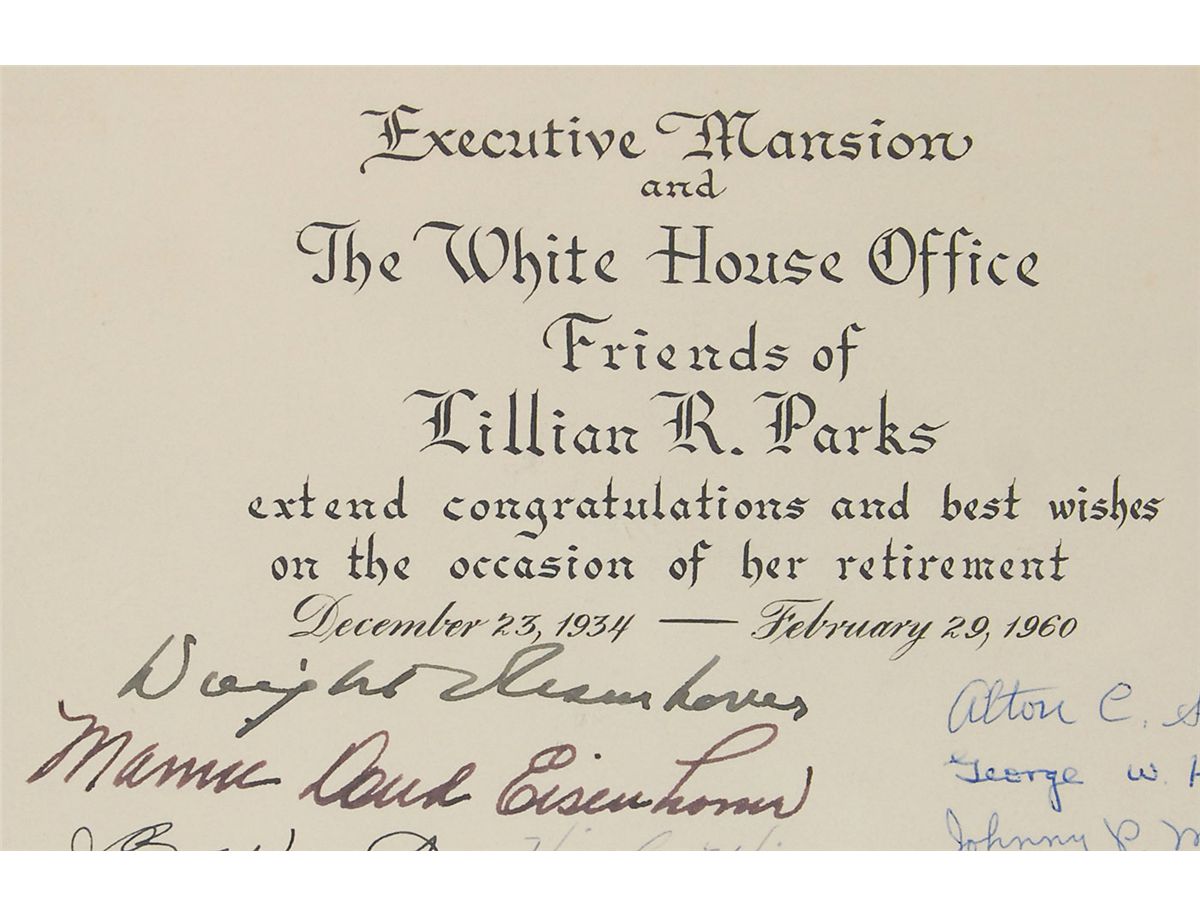 Executive Mansion
and
The White House Office
Friends of
Lillian R. Parks
extend congratulations and best wishes
on the occasion of her retirement
December 23, 1934 — February 29, 1960
Dwight Eisenhower
Mamie Doud Eisenhower
Alton C.
George W.
Johnny P.